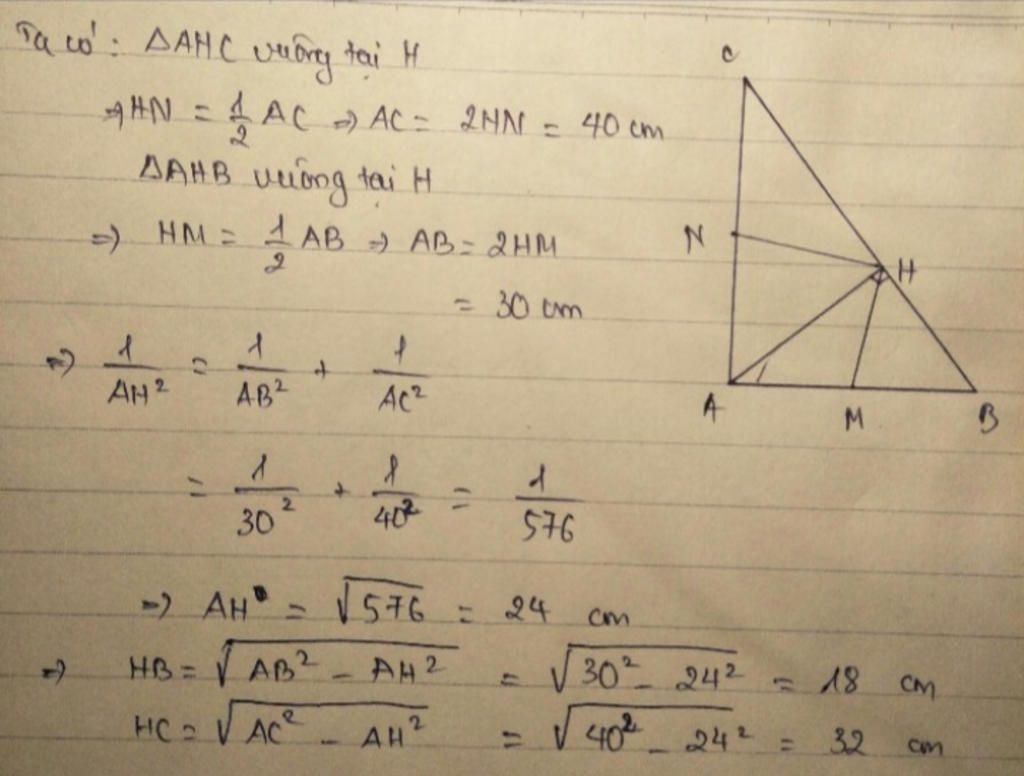 Ta có: ΔAHC vuông tại H
⇒ HN = 1/2 AC ⇒ AC = 2HN = 40 cm
ΔAHB vuông tại H
⇒ HM = 1/2 AB ⇒ AB = 2HM
= 30 cm
⇒ 1/AH² = 1/AB² + 1/AC²
= 1/30² + 1/40² = 1/576
⇒ AH = √576 = 24 cm
⇒ HB = √(AB² - AH²) = √(30² - 24²) = 18 cm
HC = √(AC² - AH²) = √(40² - 24²) = 32 cm
C
N
H
A
M
B